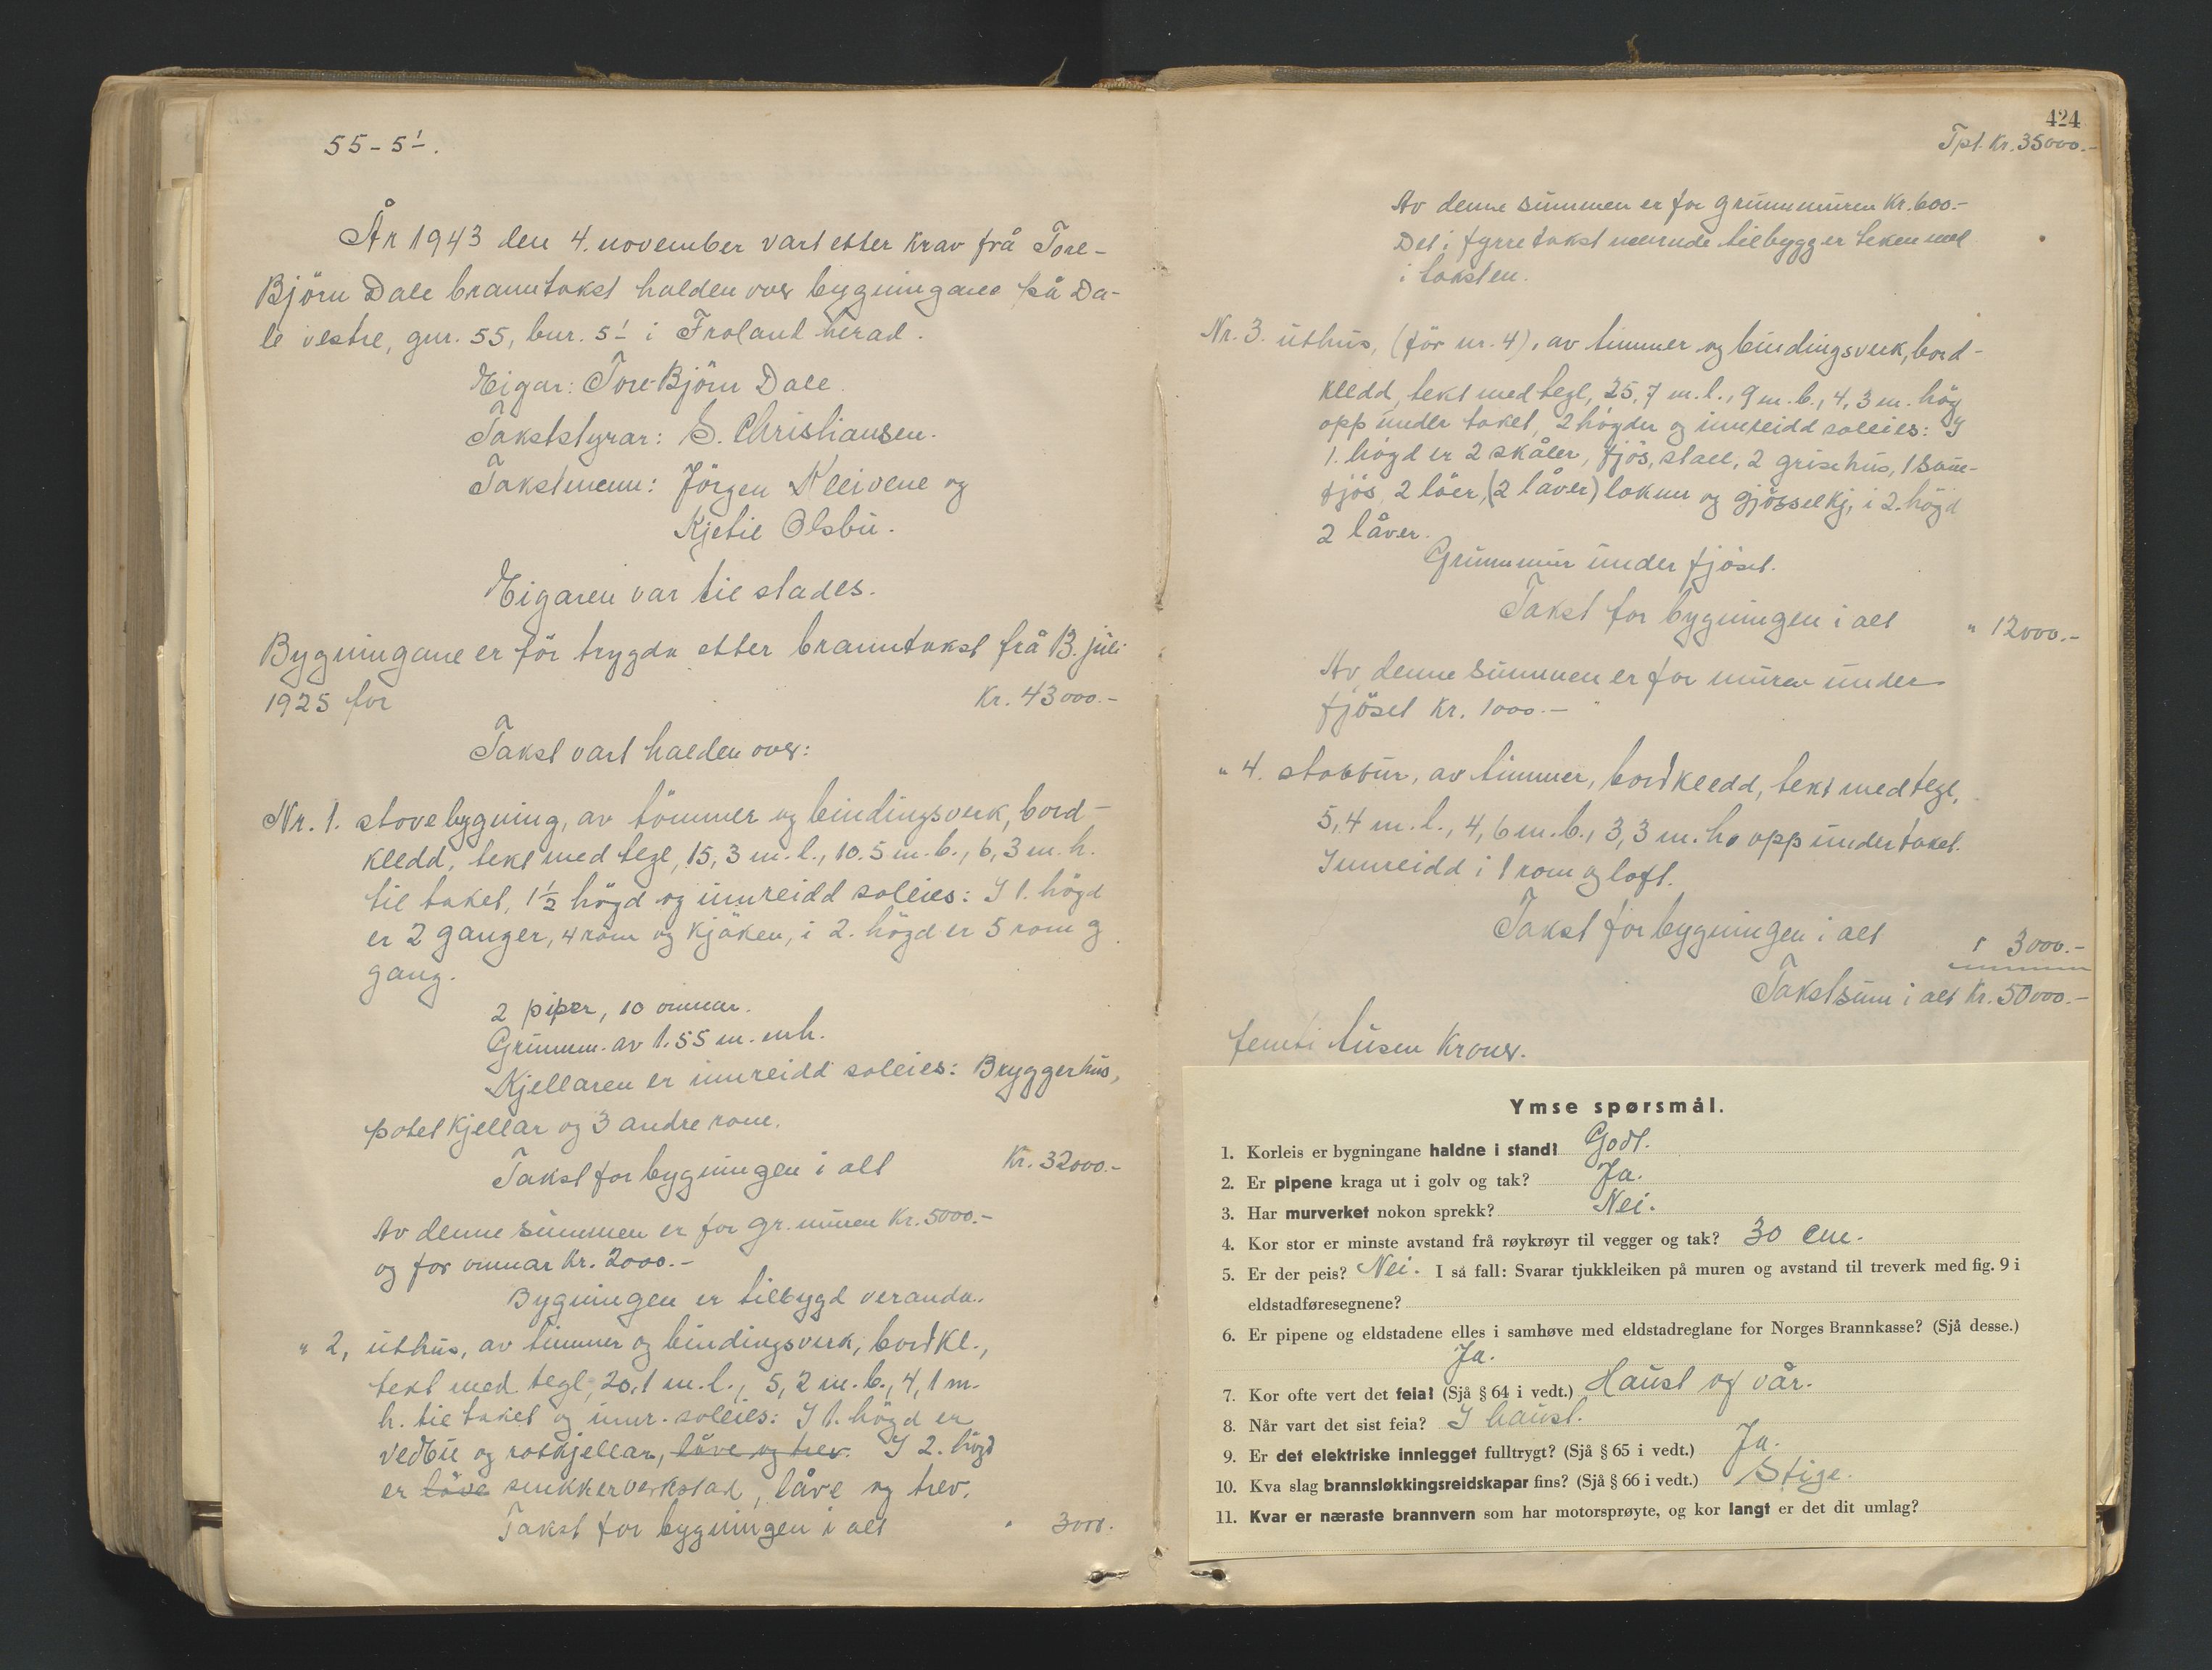 55-5¹.
År 1943 den 4. november vart etter krav frå Tore-
Björn Dale branntakst halden over bygningane på Da-
le vestre, gnr. 55, bnr. 5¹ i Froland herad.
Eigar: Tore-Björn Dale.
Takststyrar: S. Christiansen.
Takstmenn: Jörgen Kleivene og
Kjetil Olsbu.
Eigaren var til stades.
Bygningane er för trygda etter branntakst frå 13. juli
1925 for Kr. 43000.-
Takst vart halden over:
Nr. 1. stovebygning, av tömmer og bindingsverk, bord-
kledd, tekt med tegl, 15,3 m.l., 10.5 m.b., 6,3 m.h.
til taket, 1½ högd og innreidd soleies: I 1. högd
er 2 ganger, 4 rom og kjöken, i 2. högd er 5 rom g
gang.
2 piper, 10 omnar.
Grunnm. av 1.55 m. mh.
Kjellaren er innreidd soleies: Bryggerhus,
potetkjellar og 3 andre rom.
Takst for bygningen i alt Kr. 32000.-
Av denne summen er for gr. muren Kr. 5000.-
og for omnar Kr. 2000.-
Bygningen er tilbygd veranda.
" 2, uthus, av timmer og bindingsverk, bordkl.,
tekt med tegl, 20,1 m.l., 5,2 m.b., 4,1 m.
h. til taket og innr. soleies: I 1. högd er
vedbu og rotkjellar, löve og trev. I 2. högd
er löve snikkerverkstad, låve og trev.
Takst for bygningen i alt " 3000.
424
Tpt. Kr. 35000.-
Av denne summen er for grunnmuren Kr. 600.-
Det i fyrre takst nemnde tilbygg er teken med
i taksten.
Nr. 3. uthus, (för nr. 4), av timmer og bindingsverk, bord-
kledd, tekt med tegl, 25,7 m.l., 9 m.b., 4,3 m. hög
opp under taket, 2 högder og innreidd soleies: I
1. högd er 2 skåler, fjös, stall, 2 grisehus, 1 saue-
fjös, 2 löer, (2 låver) lokum og gjösselkj, i 2. högd
2 låver.
Grunnmur under fjöset.
Takst for bygningen i alt " 12000.-
Av denne summen er for muren under
fjöset Kr. 1000.-
" 4. stabbur, av timmer, bordkledd, tekt med tegl,
5,4 m.l., 4,6 m.b., 3,3 m. h. opp under taket.
Innreidd i 1 rom og loft.
Takst for bygningen i alt " 3000.-
Takstsum i alt Kr. 50000.-
femti tusen Kroner.
Ymse spørsmål.
1. Korleis er bygningane haldne i stand? Godt.
2. Er pipene kraga ut i golv og tak? Ja.
3. Har murverket nokon sprekk? Nei.
4. Kor stor er minste avstand frå røykrøyr til vegger og tak? 30 cm.
5. Er der peis? Nei. I så fall: Svarar tjukkleiken på muren og avstand til treverk med fig. 9 i
eldstadføresegnene?
6. Er pipene og eldstadene elles i samhøve med eldstadreglane for Norges Brannkasse? (Sjå desse.)
Ja.
7. Kor ofte vert det feia? (Sjå § 64 i vedt.) Haust og vår.
8. Når vart det sist feia? I haust.
9. Er det elektriske innlegget fulltrygt? (Sjå § 65 i vedt.) Ja.
10. Kva slag brannsløkkingsreidskapar fins? (Sjå § 66 i vedt.) Stige.
11. Kvar er næraste brannvern som har motorsprøyte, og kor langt er det dit umlag?